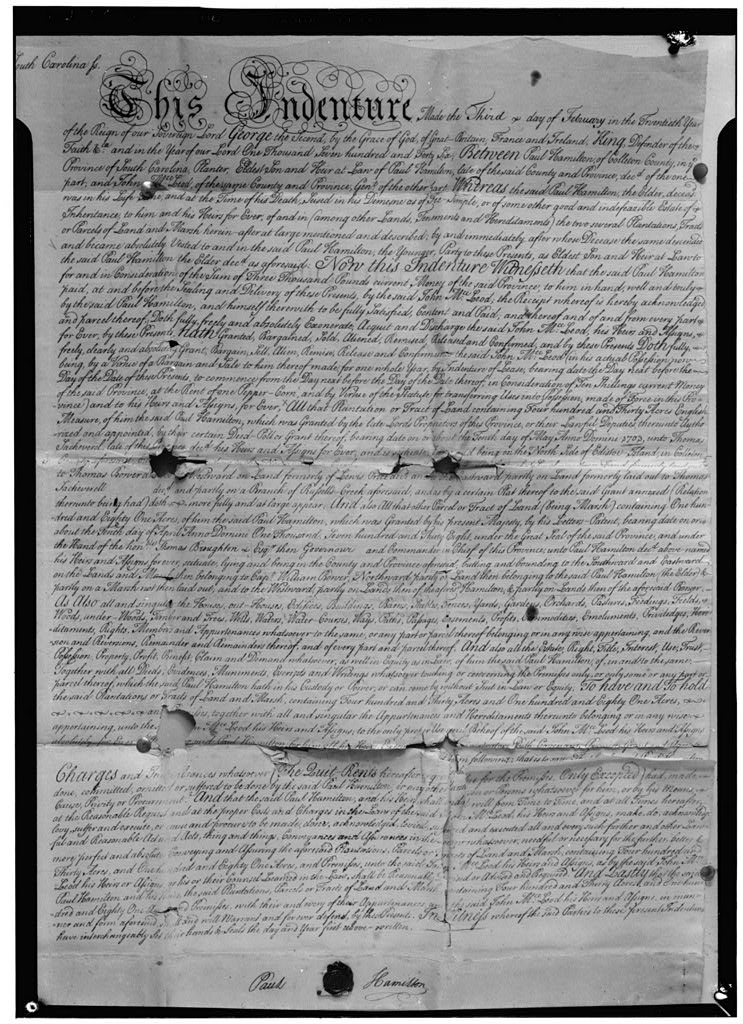 South Carolina ss.
This Indenture Made the Third day of February in the Twentieth Year
of the Reign of our Sovereign Lord George the Second, by the Grace of God, of Great-Britain France and Ireland, King, Defender of the
Faith &ca and in the Year of our Lord One Thousand Seven hundred and Forty Six, Between Paul Hamilton, of Colleton County, in ye
Province of South Carolina, Planter, Eldest Son and Heir at Law of Paul Hamilton, late of the said County and Province, decd. of the one
part, and John McLeod, of the same County and Province, Gent. of the other part. Whereas the said Paul Hamilton, the Elder, deceas'd
was in his Life Time, and at the Time of his Death, Seised in his Demesne as of Fee-Simple, or of some other good and indefeazible Estate of
Inheritance, to him and his Heirs for Ever, of and in (among other Lands, Tenements and Hereditaments) the two several Plantations, Tracts
or Parcels of Land and Marsh herein after at large mentioned and described; by and immediately after whose Decease the same descended
and became absolutely Vested to and in the said Paul Hamilton, the Younger, Party to these Presents, as Eldest Son and Heir at Law to
the said Paul Hamilton the Elder decd. as aforesaid. Now this Indenture Witnesseth that the said Paul Hamilton
for and in Consideration of the Sum of Three Thousand Pounds current Money of the said Province, to him in hand, well and truly
paid, at and before the Sealing and Delivery of these Presents, by the said John McLeod, the Receipt whereof is hereby acknowledged
by the said Paul Hamilton, and himself therewith to be fully Satisfied, Content and Paid, and thereof and of and from every part
and parcel thereof, Doth fully, freely and absolutely Exonerate, Acquit and Discharge the said John McLeod, his Heirs and Assigns,
for Ever, by these Presents, Hath Granted, Bargained, Sold, Aliened, Remised, Released and Confirmed, and by these Presents Doth fully,
freely, clearly and absolutely Grant, Bargain, Sell, Alien, Remise, Release and Confirm the said John McLeod (in his actual Possession now
being, by a Virtue of a Bargain and Sale to him thereof made for one whole Year, by Indenture of Lease, bearing date the Day next before the
Day of the Date of these Presents, to commence from the Day next before the Day of the Date thereof, in Consideration of Ten Shillings current Money
of the said Province, at the Rent of one Pepper-Corn, and by Virtue of the Statute for transferring Uses into Possession, made of Force in this Pro-
vince) and to his Heirs and Assigns, for Ever, All that Plantation or Tract of Land containing Four hundred and Thirty Acres English
Measure, of him the said Paul Hamilton, which was Granted by the late Lords Proprietors of this Province, or their Lawful Deputies thereunto Autho-
rized and appointed, by their certain Deed-Poll or Grant thereof, bearing date on or about the Tenth day of May Anno Domini 1703, unto Thomas
Sacheverell, late of this decd. his Heirs and Assigns for Ever, and is situate and being on the North Side of Edistow Island, in Colleton
to Thomas Bower Westward on Land formerly of Lewis Eastward partly on Land formerly laid out to Thomas
Sacheverell decd. and partly on a Branch of Russells Creek aforesaid, and as by a certain Plat thereof to the said Grant annexed (Relation
thereunto being had) doth more fully and at large appear. And also All that other Parcel or Tract of Land (being Marsh) containing One hun-
dred and Eighty One Acres, of him the said Paul Hamilton, which was Granted by his present Majesty, by his Letters-Patent, bearing date on or
about the Tenth day of April Anno Domini One Thousand, Seven hundred and Thirty Eight, under the Great Seal of the said Province, and under
the Hand of the honble. Thomas Broughton Esqr. then Governour and Commander in Chief of this Province, unto Paul Hamilton decd. above named
his Heirs and Assigns for ever, situate, lying and being in the County and Province aforesaid, butting and bounding to the Southward and Eastward
on the Lands and Marsh then belonging to Capt. William Bower, Northward partly on Land then belonging to the said Paul Hamilton, the Elder, &
partly on a Marsh not then laid out, and to the Westward, partly on Lands then of the aforesd. Hamilton, & partly on Lands then of the aforesd. Bower.
As Also all and singular the Houses, out-Houses, Edifices, Buildings, Barns, Stables, Fences, Yards, Gardens, Orchards, Pastures, Feedings, Fields,
Woods, under-Woods, Timber and Trees, Wells, Waters, Water-Courses, Ways, Paths, Passages, Easements, Profits, Commodities, Emoluments, Priviledges, Here-
ditaments, Rights, Members and Appurtenances whatsoever to the same, or any part or parcel thereof belonging or in any wise appertaining, and the Rever-
sion and Reversions, Remainder and Remainders thereof, and of every part and parcel thereof. And also all the Estate, Right, Title, Interest, Use, Trust,
Possession, Property, Profit, Benefit, Claim and Demand whatsoever, as well in Equity as in Law, of him the said Paul Hamilton, of, in and to the same;
Together with all Deeds, Evidences, Muniments, Escripts and Writings whatsoever touching or concerning the Premises only, or only some or any part or
parcel thereof, which the said Paul Hamilton hath in his Custody or Power, or can come by without Suit in Law or Equity. To Have and To hold
the said Plantations or Tracts of Land and Marsh, containing Four hundred and Thirty Acres and One hundred and Eighty One Acres,
together with all and singular the Appurtenances and Hereditaments thereunto belonging or in any wise
appertaining, unto the Leod his Heirs and Assigns, to the only proper Behoof of the said John McLeod his Heirs and Assigns
Charges and Incumbrances whatsoever (The Quit-Rents hereafter for the Premises, Only Excepted) had, made,
done, committed, omitted or suffered to be done by the said Paul Hamilton, or any other or Persons whatsoever for him, or by his Means,
Cause, Privity or Procurement. And that the said Paul Hamilton, and his Heirs, shall well from Time to Time, and at all Times hereafter,
at the Reasonable Request and at the proper Costs and Charges in the Law of the said McLeod, his Heirs and Assigns, make, do, acknowledge
Levy, suffer and execute, or cause and procure to be made, done, acknowledged, suffered and executed all and every such further and other Law-
ful and Reasonable Act Acts, thing and things, Conveyances and Assurances in the whatsoever, needful or necessary for the further, better &
more, perfect and absolute Conveying and Assuring the aforesaid Plantations, Parcels of Land and Marsh, containing Four hundred and
Thirty Acres, and One hundred and Eighty One Acres, and Premises, unto the said Leod his Heirs and Assigns, as by the said John Mc
Leod his Heirs or Assigns, or his or their Counsel Learned in the Law, shall be Reasonably or Advised and Required. And Lastly the said
Paul Hamilton, and his Heirs the said Plantations, Parcels or Tracts of Land and Marsh containing Four hundred and Thirty Acres, and One hun-
dred and Eighty One Acres and Premises, with their and every of their Appurtenances, unto the said John McLeod his Heirs and Assigns, in man-
ner and form aforesaid, and will Warrant and for ever defend, by these Presents. In Witness whereof the said Parties to these present Indentures
have interchangeably Set their hands & Seals the day and Year first above-written.
Paul Hamilton